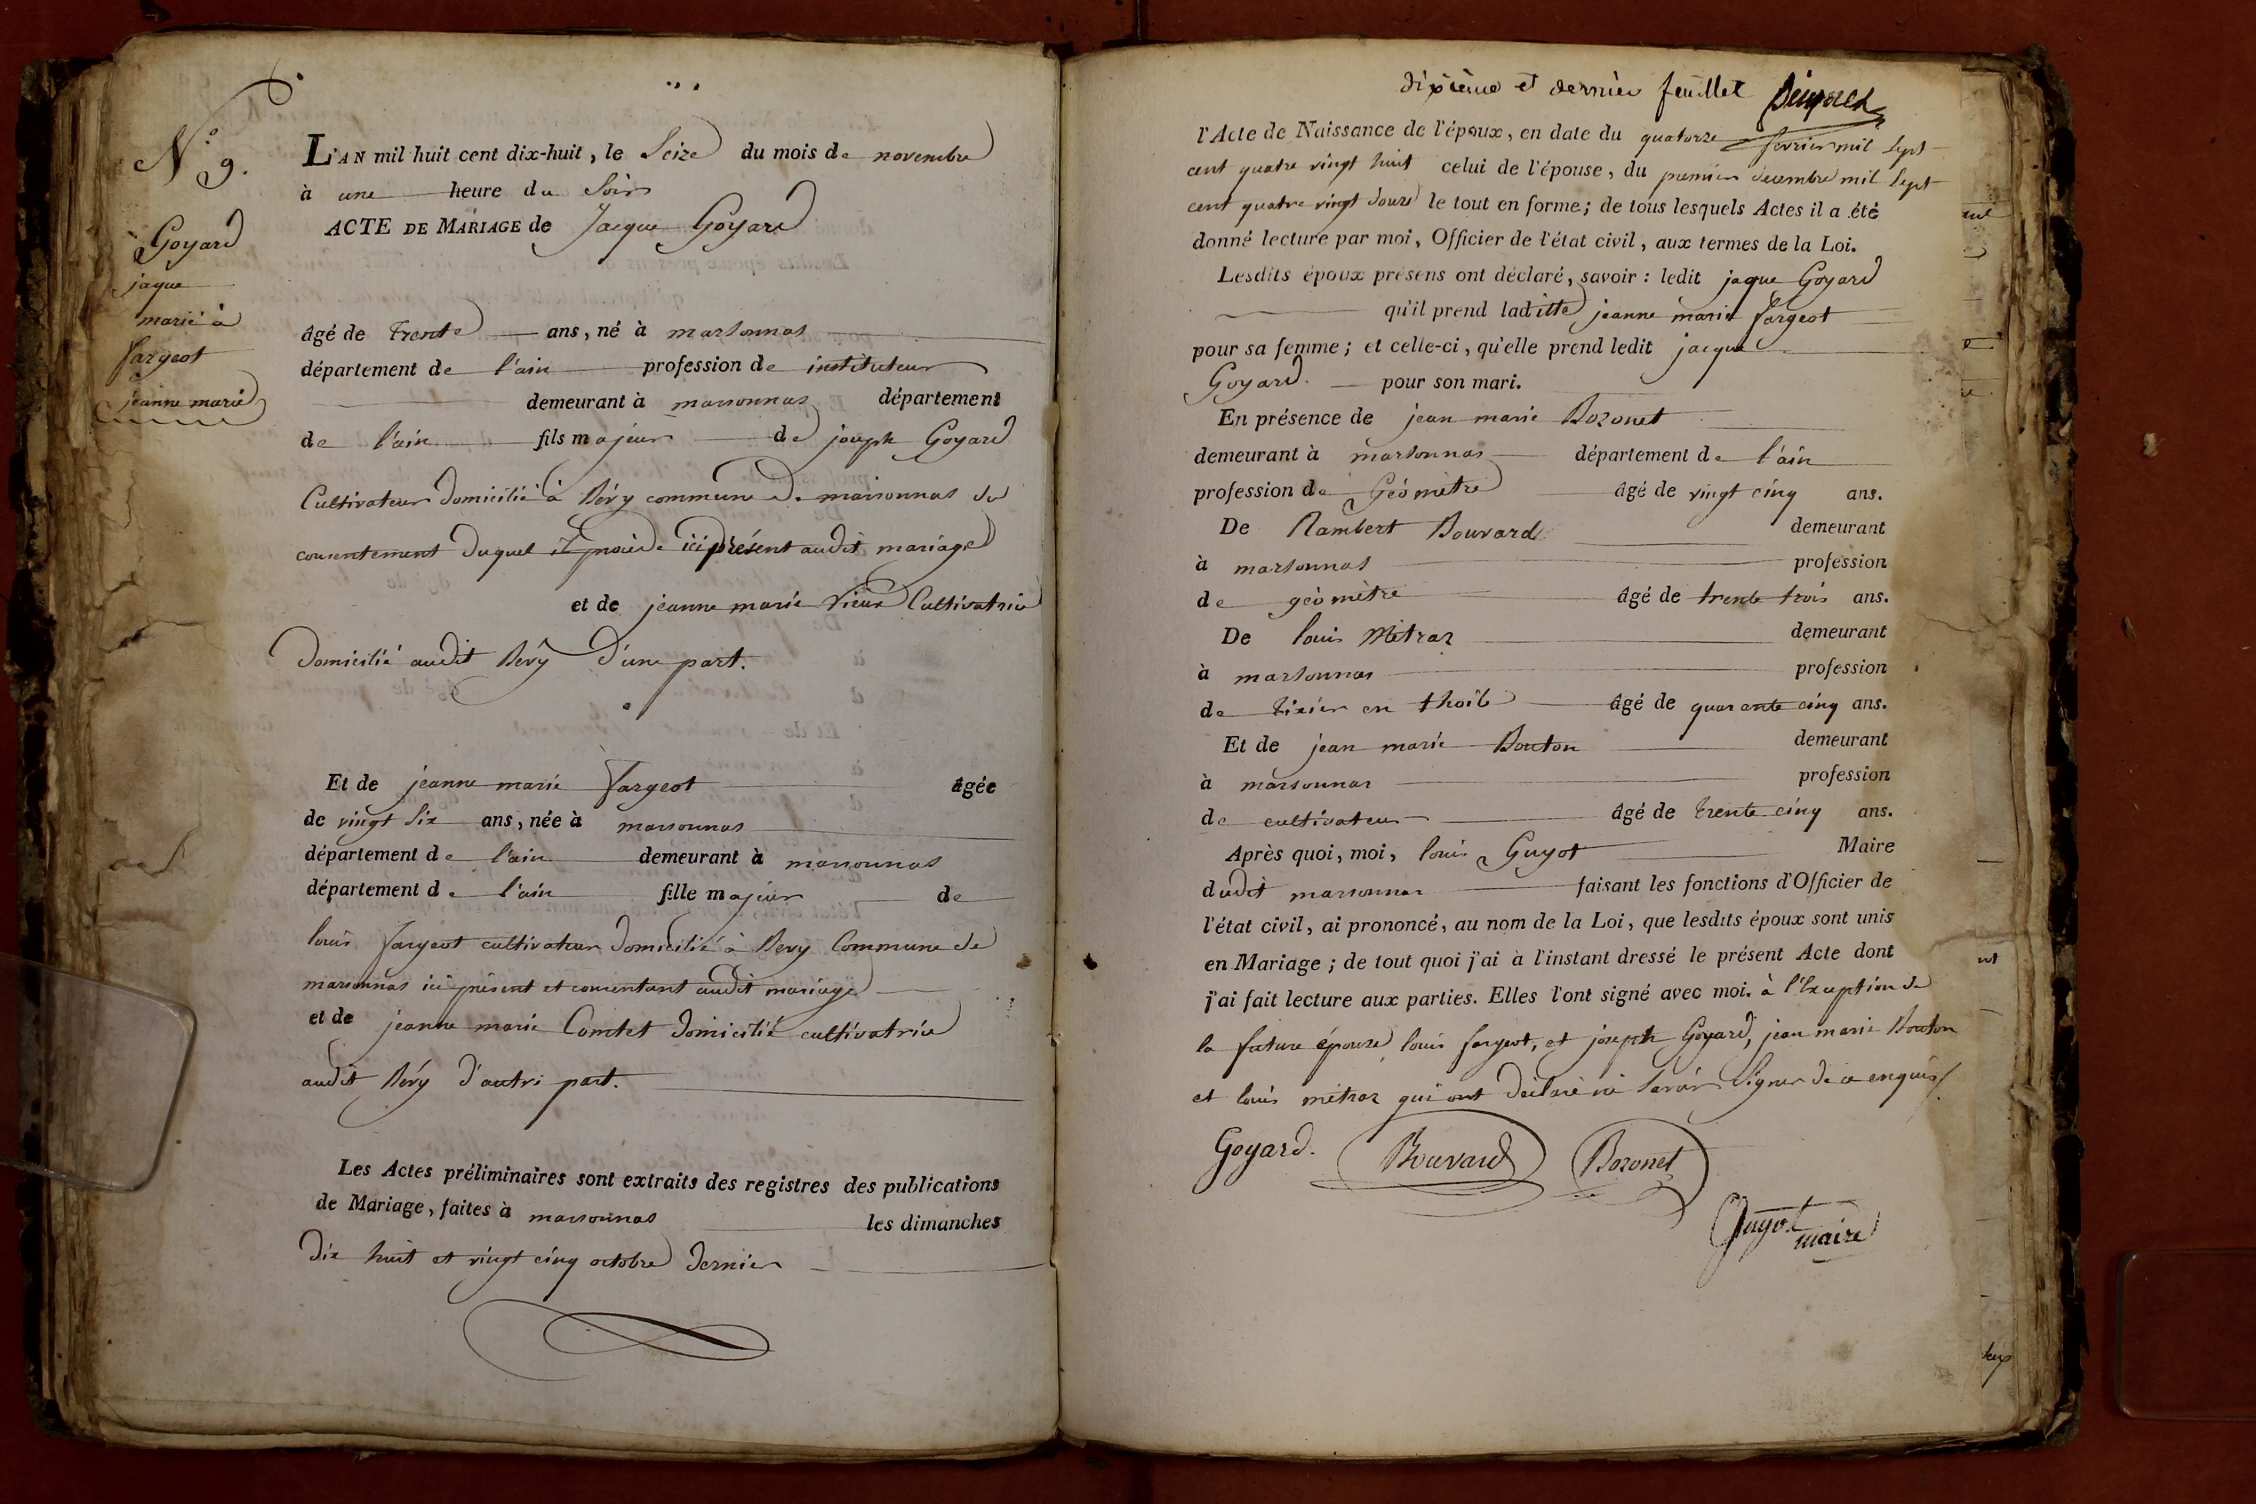 N.° 9.
Goyard
jaque
marié à
fargeot
jeanne marie
L'AN mil huit cent dix-huit, le Seize du mois de novembre
à une heure du Soir
ACTE DE MARIAGE de Jacque Goyard
âgé de trente ans, né à marsonnas
département de l'ain profession de instituteur
demeurant à marsonnas département
de l'ain fils majeur de joseph Goyard
Cultivateur domicilié à Bévy commune de marsonnas du
consentement duquel il procède ici présent audit mariage
et de jeanne marie Vieux Cultivatrice
domicilié audit Bévy d'une part.
Et de jeanne marie fargeot âgée
de vingt six ans, née à marsonnas
département de l'ain demeurant à marsonnas
département de l'ain fille majeur de
louis fargeot cultivateur domicilié à Bevy Commune de
marsonnas ici présent et consentant audit mariage
et de jeanne marie Comtet domicilié cultivatrice
audit Bévy d'autre part.
Les Actes préliminaires sont extraits des registres des publications
de Mariage, faites à marsonnas les dimanches
dix huit et vingt cinq octobre dernier
dixième et dernier feuillet
l'Acte de Naissance de l'époux, en date du quatorze fevrier mil sept
cent quatre vingt huit celui de l'épouse, du premier décembre mil sept
cent quatre vingt douze le tout en forme; de tous lesquels Actes il a été
donné lecture par moi, Officier de l'état civil, aux termes de la Loi.
Lesdits époux présens ont déclaré, savoir : ledit jaque Goyard
qu'il prend laditte jeanne marie fargeot
pour sa femme; et celle-ci, qu'elle prend ledit jacque
Goyard. pour son mari.
En présence de jean marie Bozonet
demeurant à marsonnas département de l'ain
profession de Géomètre âgé de vingt cinq ans.
De Rambert Bouvard demeurant
à marsonnas profession
de géomètre âgé de trente trois ans.
De louis Métraz demeurant
à marsonnas profession
de tixier en thoile âgé de quarante cinq ans.
Et de jean marie Bouton demeurant
à marsonnas profession
de cultivateur âgé de trente cinq ans.
Après quoi, moi, louis Guyot Maire
dudit marsonnas faisant les fonctions d'Officier de
l'état civil, ai prononcé, au nom de la Loi, que lesdits époux sont unis
en Mariage; de tout quoi j'ai à l'instant dressé le présent Acte dont
j'ai fait lecture aux parties. Elles l'ont signé avec moi. à l'Exception de
la future épouse, louis fargeot, et joseph Goyard, jean marie Bouton
et louis métraz qui ont déclaré ne savoir signer de ce enquis
Goyard. Bouvard Bozonet
Guyot
maire